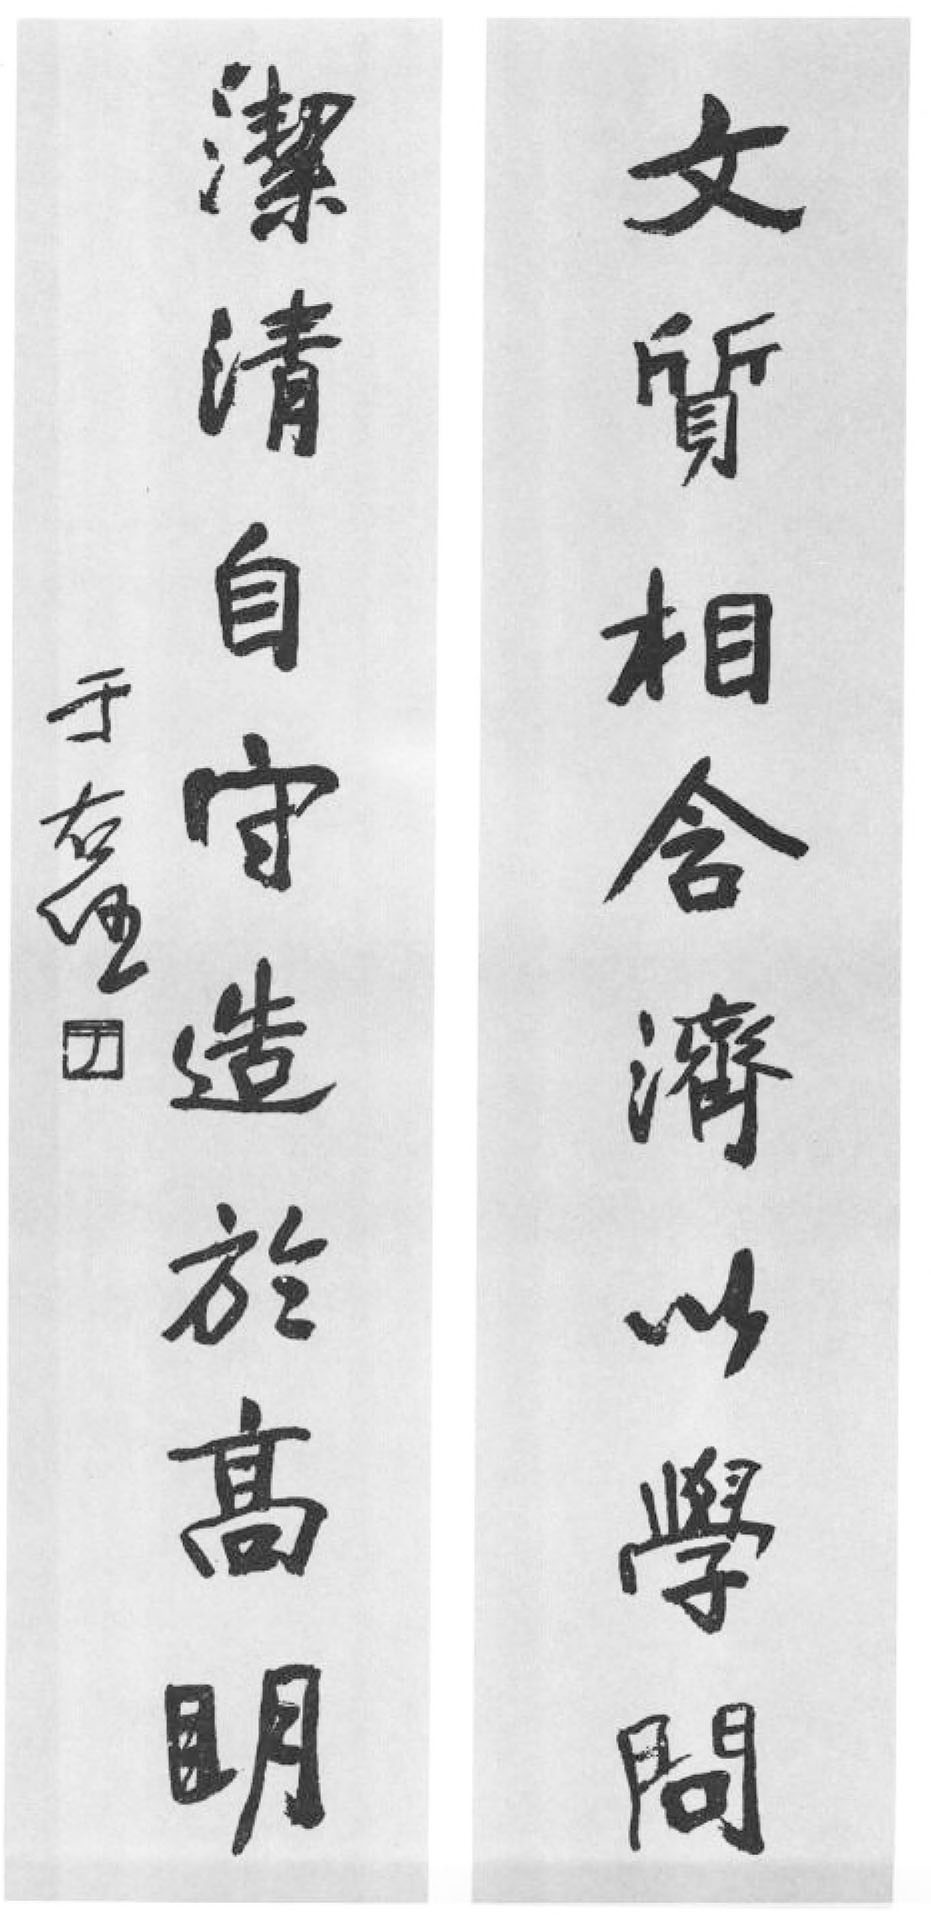 文質相含濟以學問
潔清自守造於高明
于右任
于